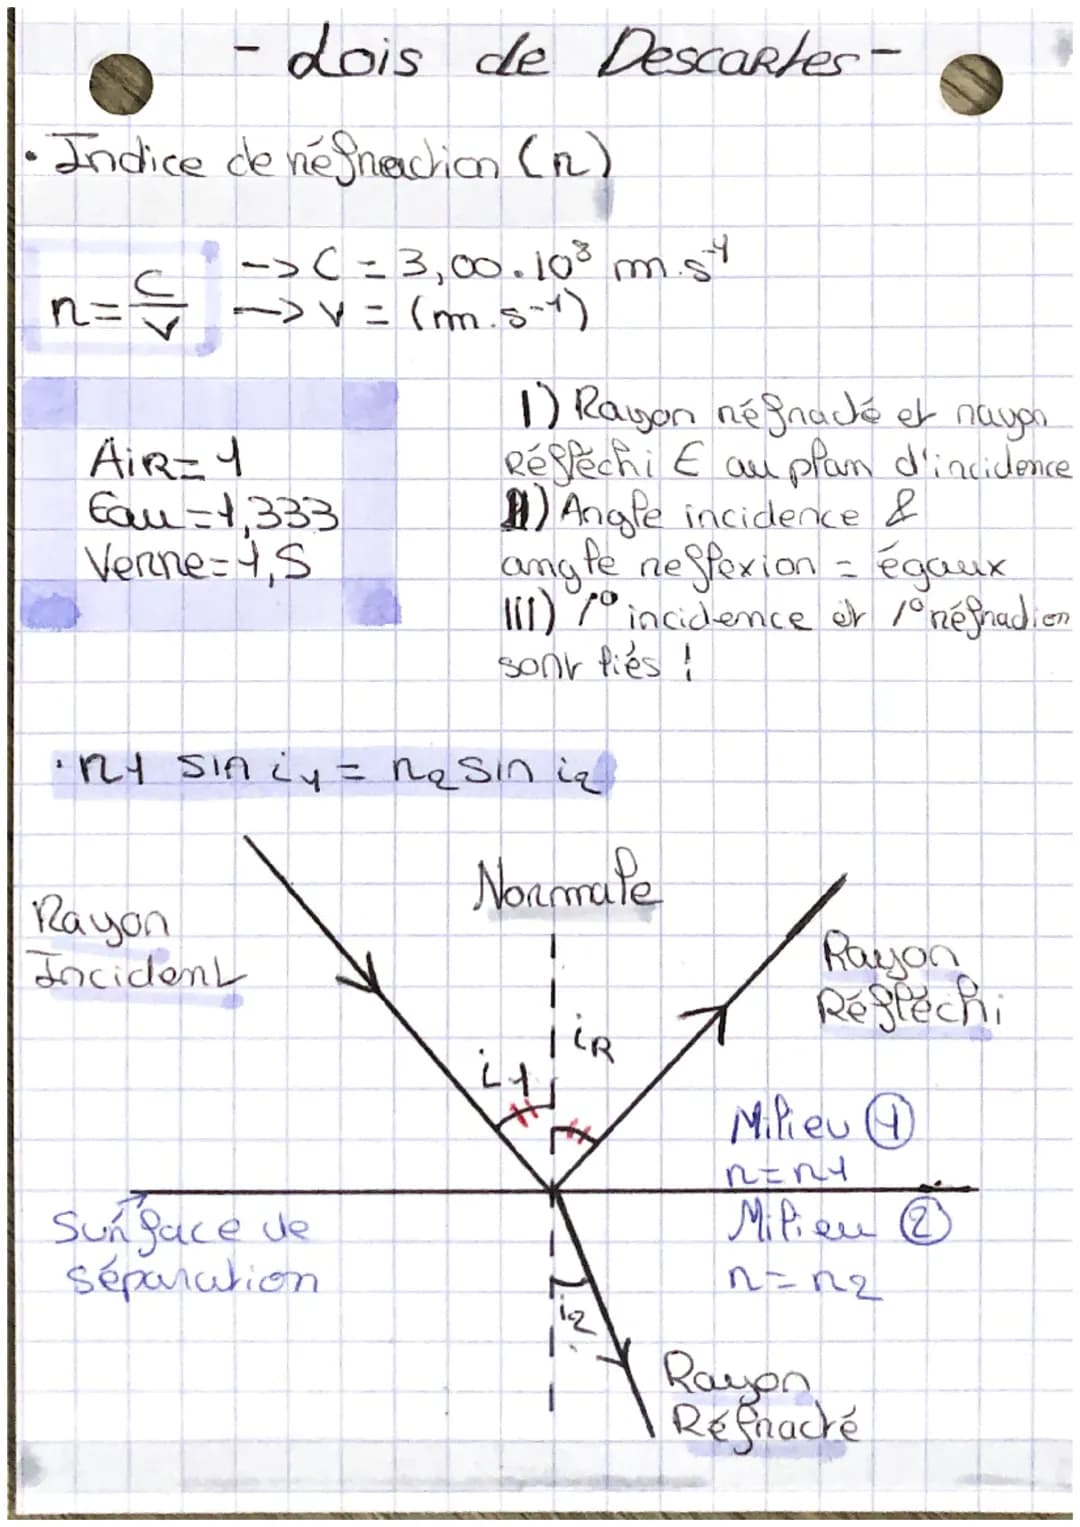 - Lois de Descartes -
• Indice de réfraction (n)
n = c/v
-> C = 3,00.10⁸ m.s⁻¹
-> v = (m.s⁻¹)
Air = 1
Eau = 1,333
Verre = 1,5
I) Rayon réfracté et rayon
Réfléchi ∈ au plan d'incidence
II) Angle incidence &
angle reflexion = égaux
III) 1° incidence et 1° réfraction
sont liés !
• n1 sin i1 = n2 sin i2
Normale
Rayon
Incident
Rayon
Réfléchi
i1
iR
Milieu 1
n = n1
Surface de
séparation
Milieu 2
n = n2
i2
Rayon
Réfracté